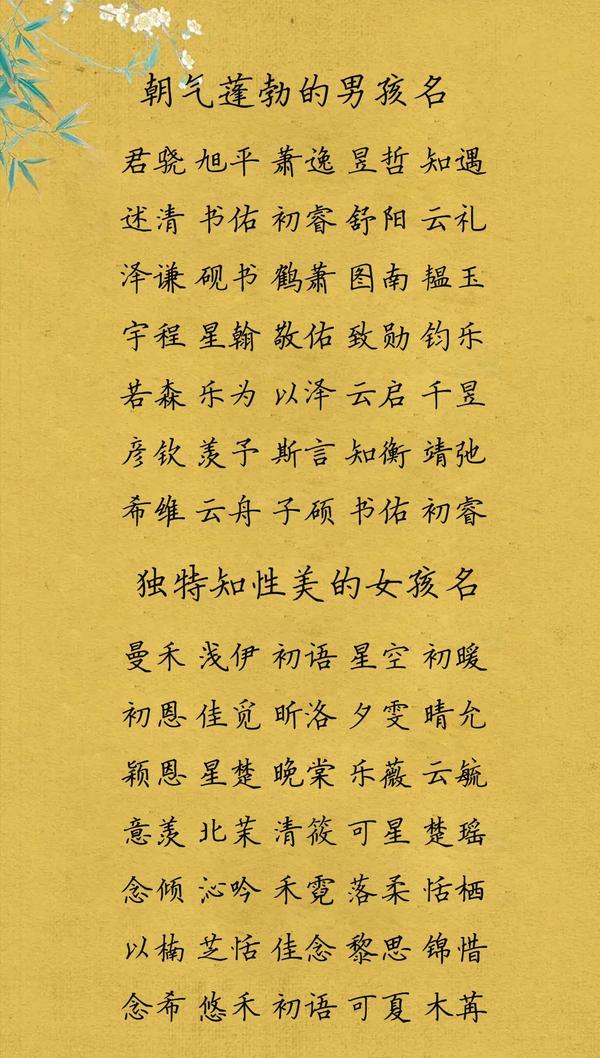 朝气蓬勃的男孩名
君骁 旭平 萧逸 昱哲 知遇
述清 书佑 初睿 舒阳 云礼
泽谦 砚书 鹤萧 图南 韫玉
宇程 星翰 敬佑 致勋 钧乐
若森 乐为 以泽 云启 千昱
彦钦 羡予 斯言 知衡 靖弛
希维 云舟 子硕 书佑 初睿
独特知性美的女孩名
曼禾 浅伊 初语 星空 初暖
初恩 佳觅 昕洛 夕雯 晴允
颖恩 星楚 晚棠 乐薇 云毓
意羡 北茉 清筱 可星 楚瑶
念倾 沁吟 禾霓 落柔 恬栖
以楠 芝恬 佳念 黎思 锦惜
念希 悠禾 初语 可夏 木苒